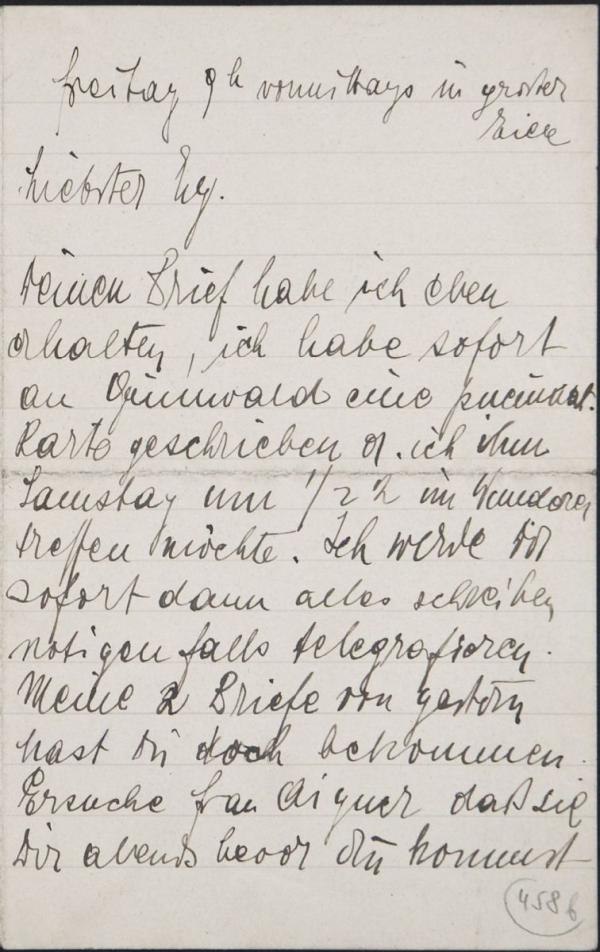 Freitag 9h vormittags in großer
Eile
Liebster Eg.
Deinen Brief habe ich eben
erhalten, ich habe sofort
an Grünwald eine pneumat.
Karte geschrieben d. ich ihm
Samstag um 1/2 2h im
treffen möchte. Ich werde dir
sofort dann alles schreiben
nötigen falls telegrafieren.
Meine 2 Briefe von gestern
hast du doch bekommen.
Ersuche frau Aigner daß sie
dir abends bevor du kommst
458 b